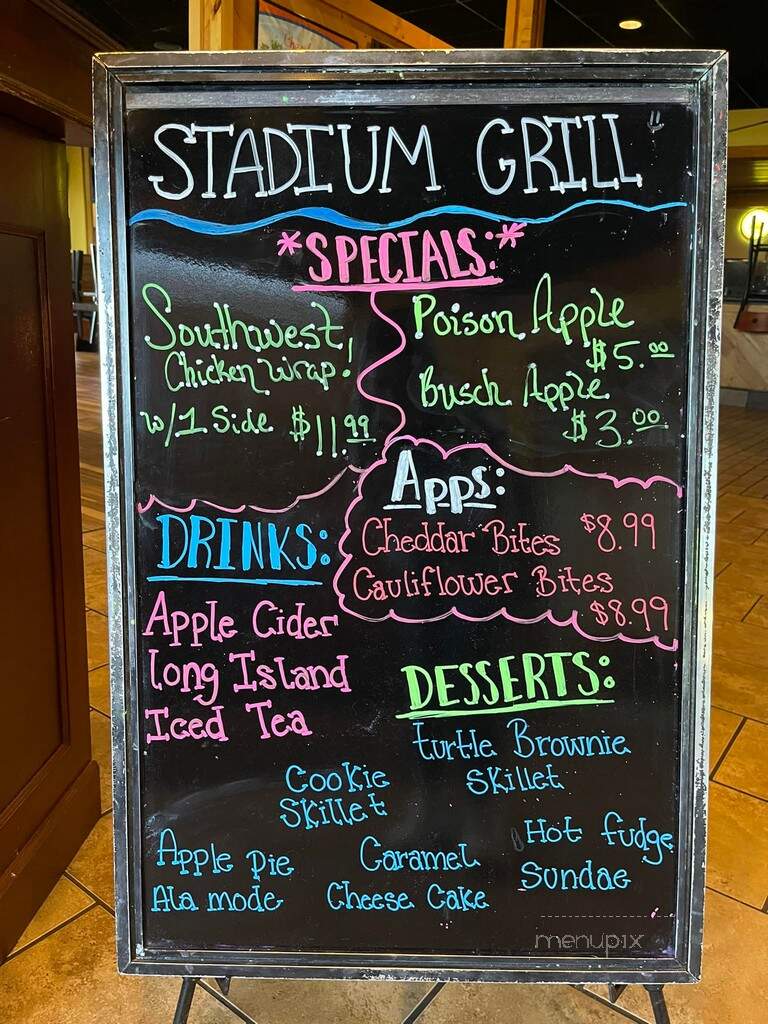 STADIUM GRILL
*SPECIALS:*
Southwest
Chicken Wrap!
w/1 Side $11.99
Poison Apple
$5.00
Busch Apple
$3.00
Apps:
Cheddar Bites $8.99
Cauliflower Bites
$8.99
DRINKS:
Apple Cider
Long Island
Iced Tea
DESSERTS:
turtle Brownie
Skillet
Cookie
Skillet
Apple Pie
Ala mode
Caramel
Cheese Cake
Hot fudge
Sundae
menupix